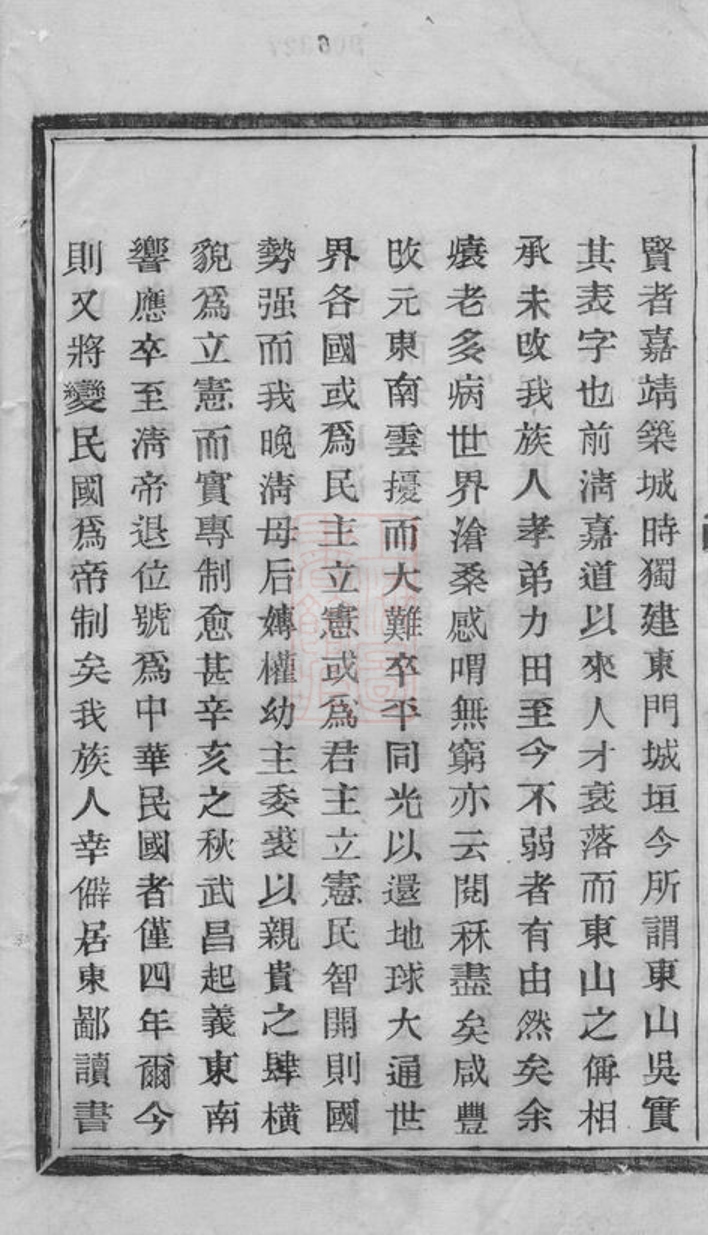 賢者嘉靖築城時獨建東門城垣今所謂東山吳實
其表字也前淸嘉道以來人才衰落而東山之偁相
承未改我族人孝弟力田至今不弱者有由然矣余
老多病世界滄桑感喟無窮亦云閱秝盡矣咸豐
改元東南雲擾而大難卒平同光以還地球大通世
界各國或爲民主立憲或爲君主立憲民智開則國
勢强而我晚淸母后嫥權幼主委裘以親貴之肆橫
貌爲立憲而實專制愈甚辛亥之秋武昌起義東南
響應卒至淸帝退位號爲中華民國者僅四年爾今
則又將變民國爲帝制矣我族人幸僻居東鄙讀書